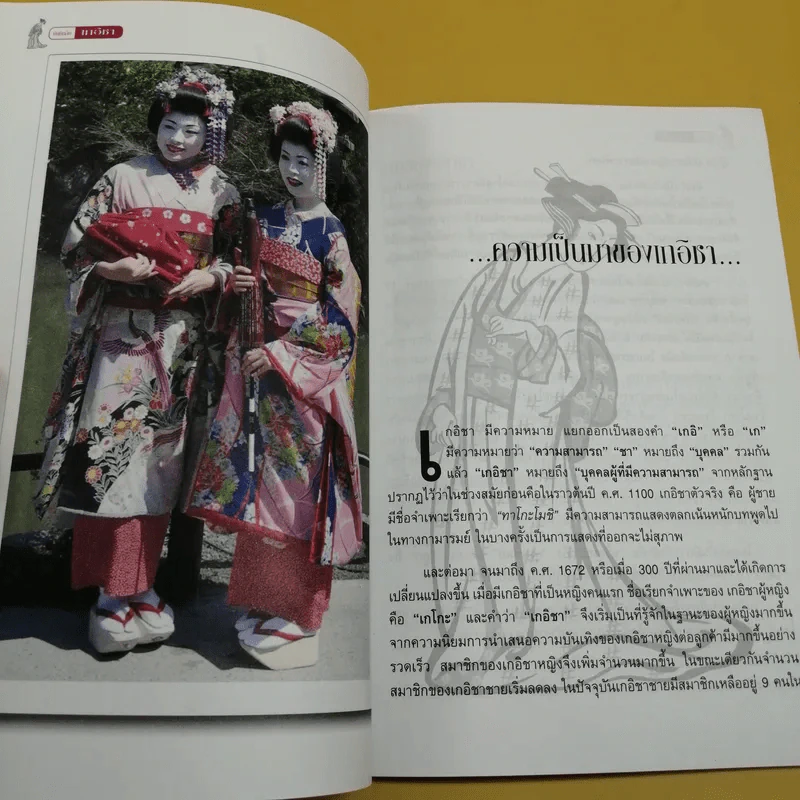 เกอิชา
...ความเป็นมาของเกอิชา...
เกอิชา มีความหมาย แยกออกเป็นสองคำ “เกอิ” หรือ “เก”
มีความหมายว่า “ความสามารถ” “ชา” หมายถึง “บุคคล” รวมกัน
แล้ว “เกอิชา” หมายถึง “บุคคลผู้ที่มีความสามารถ” จากหลักฐาน
ปรากฏไว้ว่าในช่วงสมัยก่อนคือในราวต้นปี ค.ศ. 1100 เกอิชาตัวจริง คือ ผู้ชาย
มีชื่อจำเพาะเรียกว่า “ทาโกะโมชิ” มีความสามารถแสดงตลกเน้นหนักบทพูดไป
ในทางกามารมย์ ในบางครั้งเป็นการแสดงที่ออกจะไม่สุภาพ
และต่อมา จนมาถึง ค.ศ. 1672 หรือเมื่อ 300 ปีที่ผ่านมาและได้เกิดการ
เปลี่ยนแปลงขึ้น เมื่อมีเกอิชาที่เป็นหญิงคนแรก ชื่อเรียกจำเพาะของ เกอิชาผู้หญิง
คือ “เกโกะ” และคำว่า “เกอิชา” จึงเริ่มเป็นที่รู้จักในฐานะของผู้หญิงมากขึ้น
จากความนิยมการนำเสนอความบันเทิงของเกอิชาหญิงต่อลูกค้ามีมากขึ้นอย่าง
รวดเร็ว สมาชิกของเกอิชาหญิงจึงเพิ่มจำนวนมากขึ้น ในขณะเดียวกันจำนวน
สมาชิกของเกอิชาชายเริ่มลดลง ในปัจจุบันเกอิชาชายมีสมาชิกเหลืออยู่ 9 คนใน